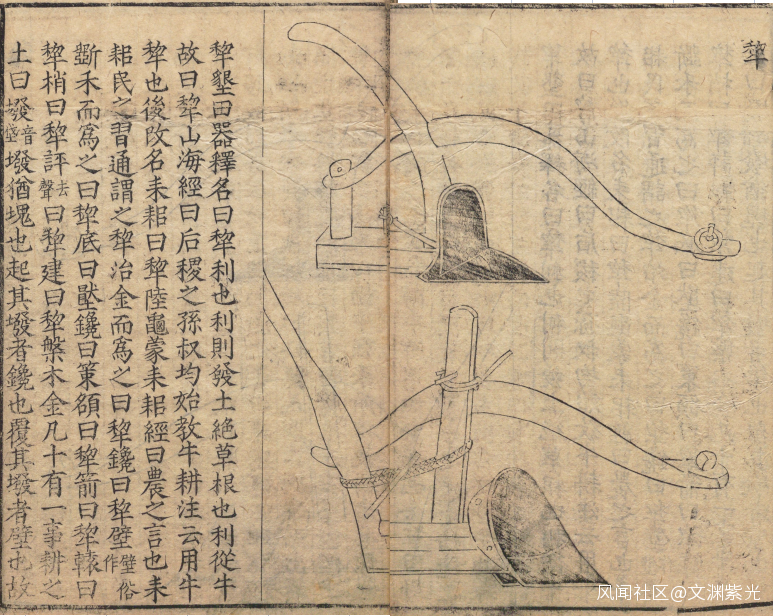 犂
犂墾田器釋名曰犂利也利則發土絕草根也利從牛
故曰犂山海經曰后稷之孫叔均始教牛耕注云用牛
犂也後改名耒耜曰犂陸龜蒙耒耜經曰農之言也耒
耜民之習通謂之犂冶金而爲之曰犂鑱曰犂壁壁俗作
斲木而爲之曰犂底曰壓鑱曰策額曰犂箭曰犂轅曰
犂梢曰犂評去聲曰犂建曰犂槃木金凡十有一事耕之
土曰墢音墢猶塊也起其墢者鑱也覆其墢者壁也故
风闻社区@文渊紫光